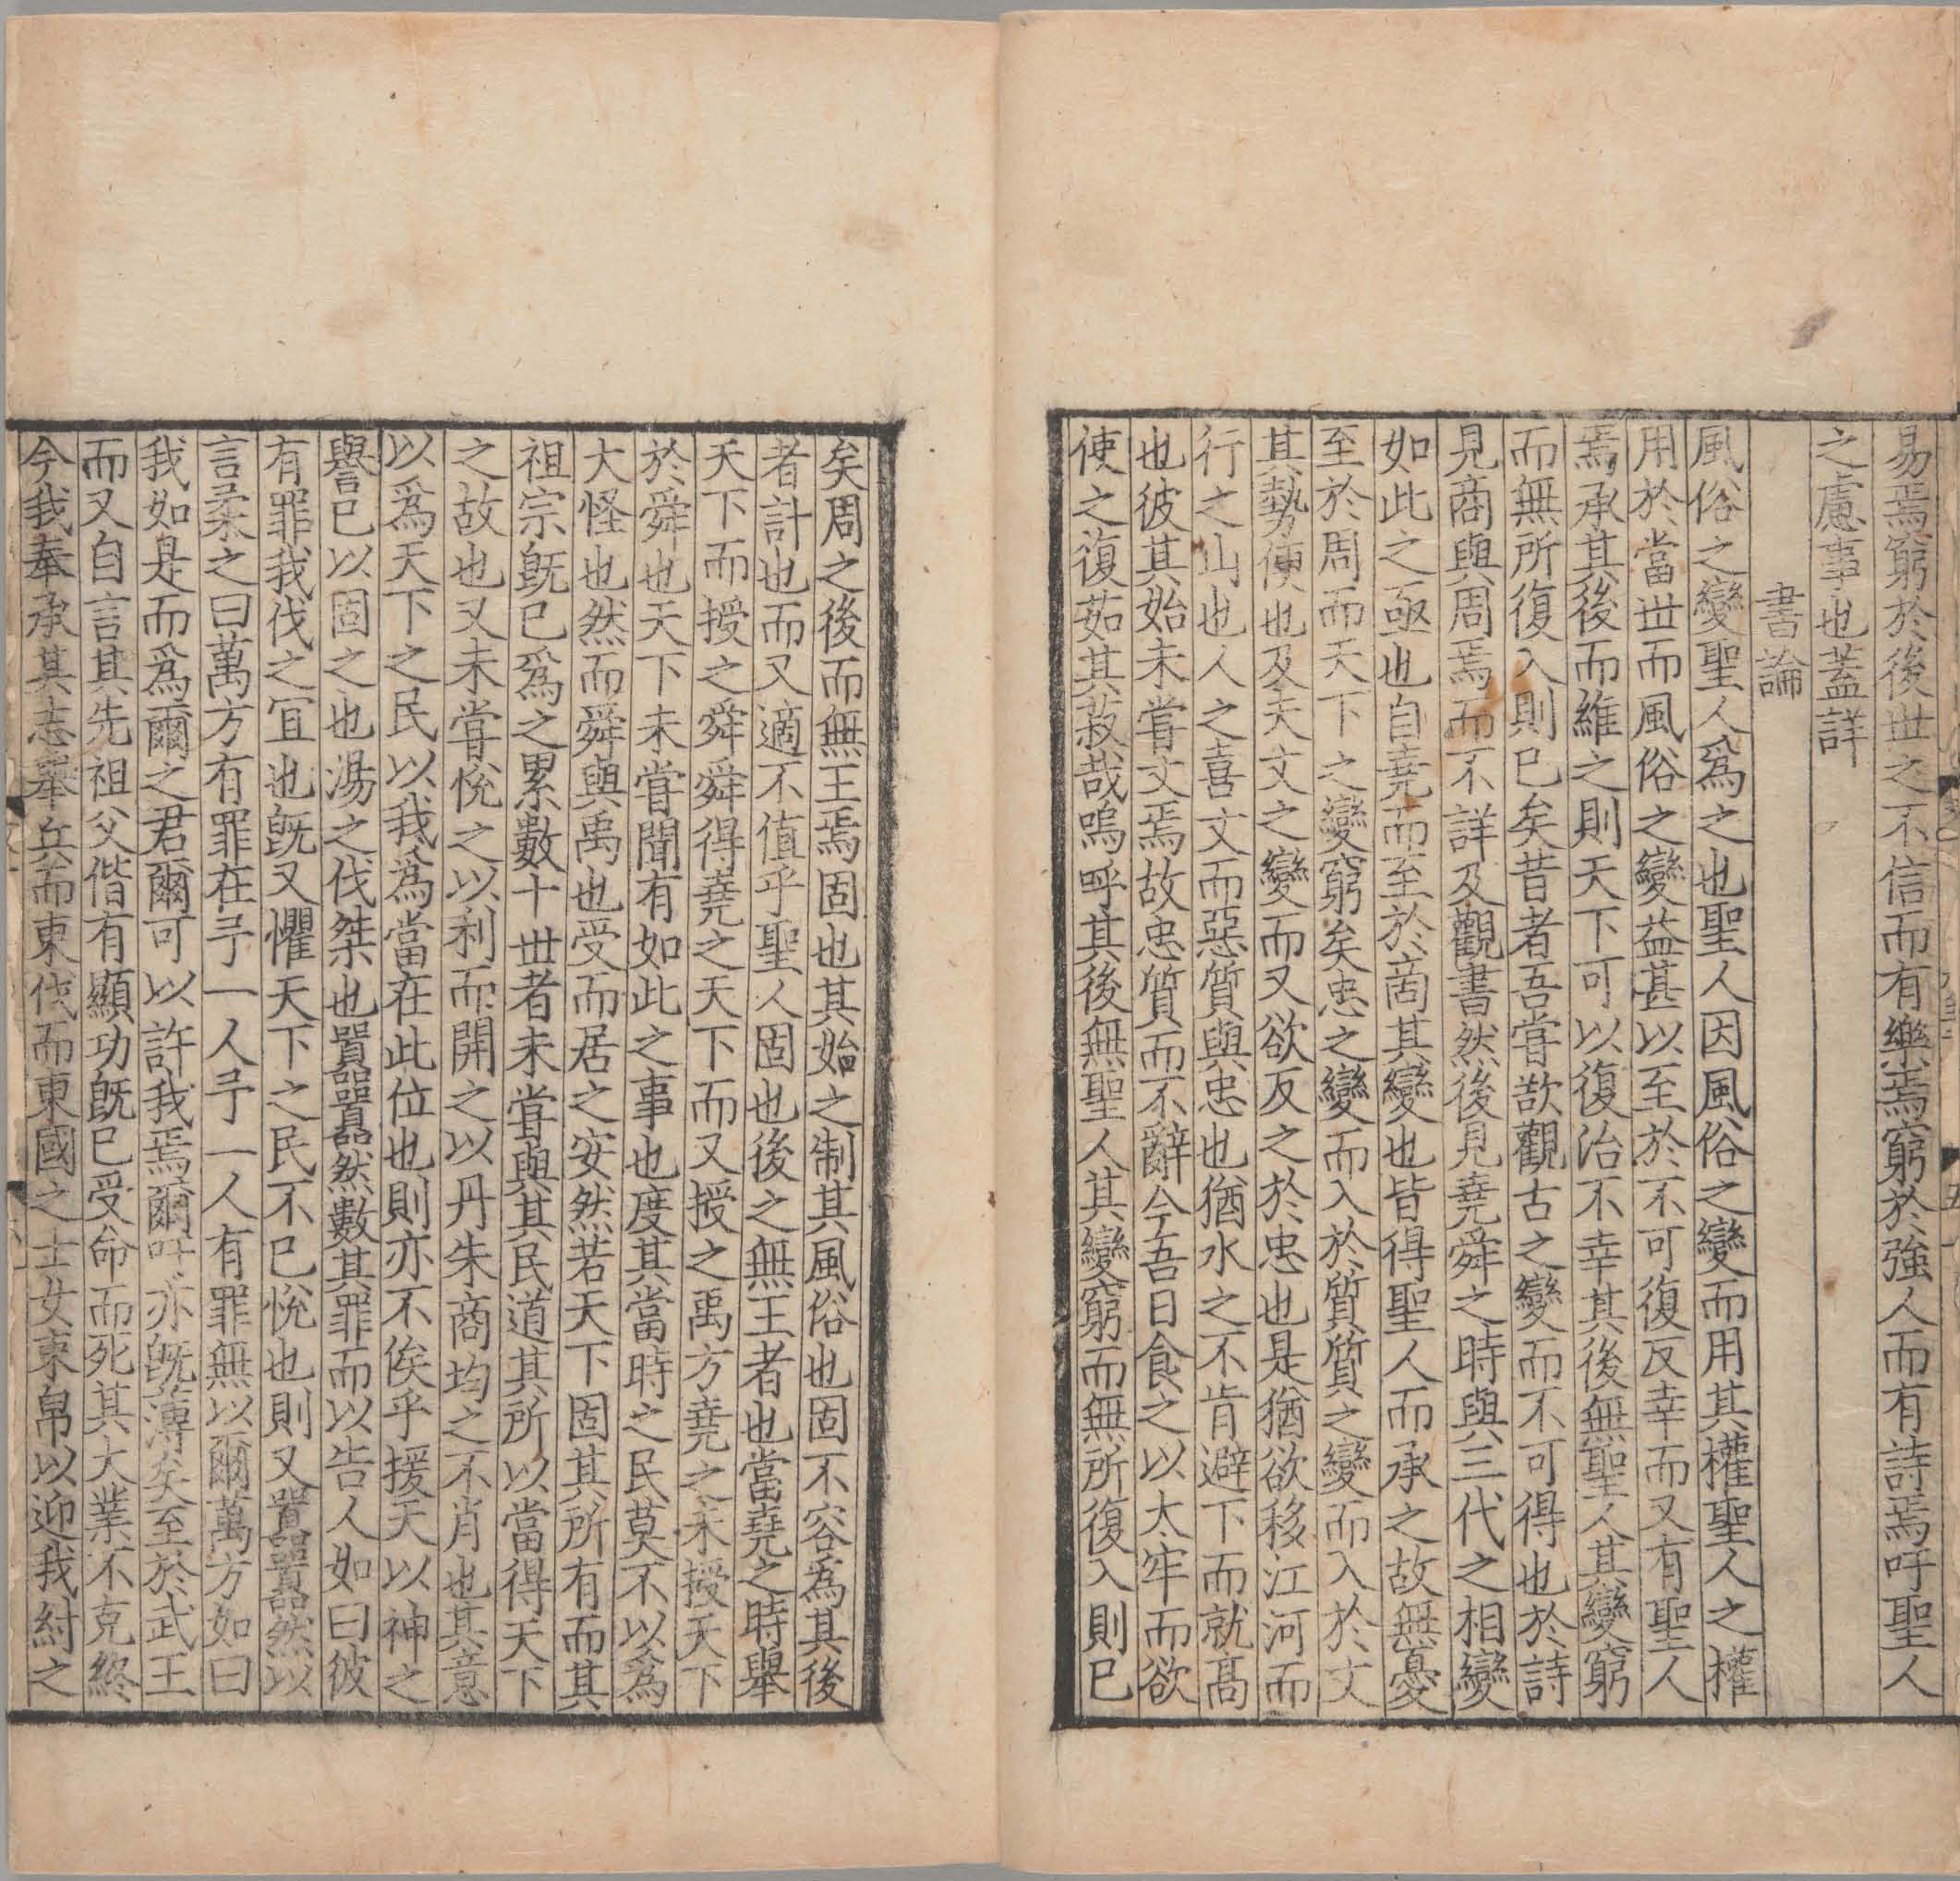 易焉窮於後世之不信而有樂焉窮於強人而有詩焉吁聖人
之慮事也蓋詳
書論
風俗之變聖人爲之也聖人因風俗之變而用其權聖人之權
用於當世而風俗之變益甚以至於不可復反幸而又有聖人
焉承其後而維之則天下可以復治不幸其後無聖人其變窮
而無所復入則已矣昔者吾嘗欲觀古之變而不可得也於詩
見商與周焉而不詳及觀書然後見堯舜之時與三代之相變
如此之亟也自堯而至於商其變也皆得聖人而承之故無憂
至於周而天下之變窮矣忠之變而入於質質之變而入於文
其勢便也及夫文之變而又欲反之於忠也是猶欲移江河而
行之山也人之喜文而惡質與忠也猶水之不肯避下而就髙
也彼其始未嘗文焉故忠質而不辭今吾日食之以太牢而欲
使之復茹其菽哉嗚呼其後無聖人其變窮而無所復入則已
矣周之後而無王焉固也其始之制其風俗也固不容爲其後
者計也而又適不值乎聖人固也後之無王者也當堯之時舉
天下而授之舜舜得堯之天下而又授之禹方堯之未授天下
於舜也天下未甞聞有如此之事也度其當時之民莫不以爲
大怪也然而舜與禹也受而居之安然若天下固其所有而其
祖宗旣已爲之累數十世者未甞與其民道其所以當得天下
之故也又未甞恱之以利而開之以丹朱商均之不肖也其意
以爲天下之民以我爲當在此位也則亦不俟乎援天以神之
譽已以固之也湯之伐桀也囂囂然數其罪而以告人如曰彼
有罪我伐之冝也旣又懼天下之民不已恱也則又囂囂然以
言柔之曰萬方有罪在予一人予一人有罪無以爾萬方如曰
我如是而爲爾之君爾可以許我焉爾吁亦旣薄矣至於武王
而又自言其先祖父偕有顯功旣已受命而死其大業不克終
今我奉承其志舉兵而東伐而東國之士女束帛以迎我紂之